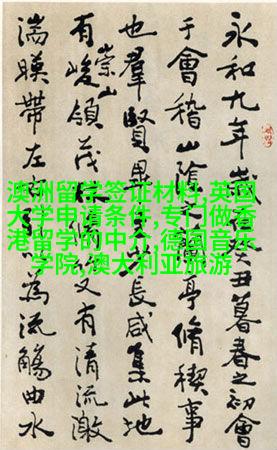 澳洲留学签证材料,英国
大学申请条件,专门做香
港留学的中介,德国音乐
学院,澳大利亚旅游
永和九年歲癸丑暮春之初會
于會稽山陰亭脩稧事
也羣賢畢長咸集此地
有崇山峻領茂又有清流激
湍暎帶左為流觴曲水